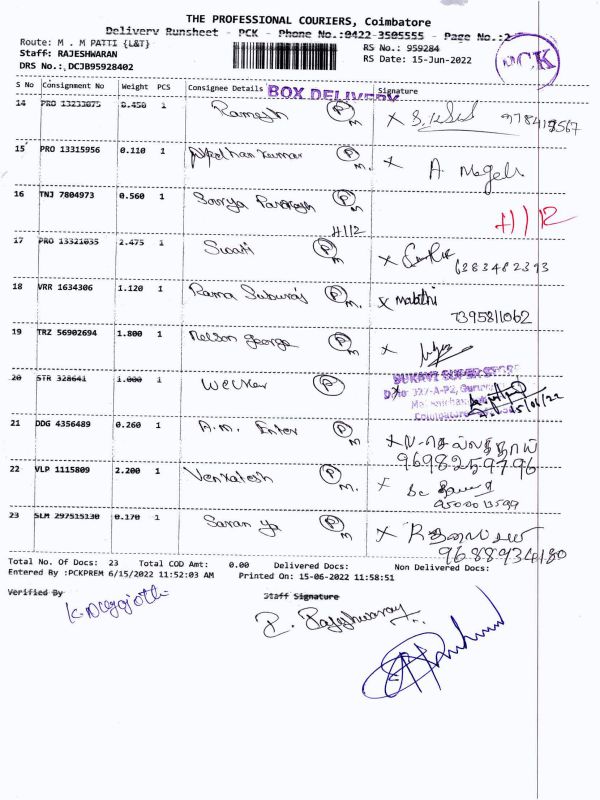 THE PROFESSIONAL COURIERS, Coimbatore
Delivery Runsheet - PCK - Phone No.:0422-3505555 - Page No.:2
Route: M . M PATTI {L&T}
RS No.: 959284
Staff: RAJESHWARAN
RS Date: 15-Jun-2022
DRS No.: DCJB95928402
PCK
S No Consignment No Weight PCS Consignee Details BOX DELIVERY Signature
14 PRO 13233075 0.450 1 Ramesh P M
15 PRO 13315956 0.110 1 P M. A.
16 TNJ 7804973 0.560 1 P M H/12
H/12
17 PRO 13321035 2.475 1 Swati P M 6383482393
18 VRR 1634306 1.120 1 Rama P M. Malathi
7395811062
19 TRZ 56902694 1.800 1 Nelson George P M
20 STR 328641 1.000 1 P SUKAVI SUPER STORE
21 DDG 4356489 0.260 1 A.M. Enter P M
9698259796
22 VLP 1115809 2.200 1 Venkatesh P M.
23 SLM 297515130 0.170 1 Saran ya P M
9688934180
Total No. Of Docs: 23 Total COD Amt: 0.00 Delivered Docs: Non Delivered Docs:
Entered By :PCKPREM 6/15/2022 11:52:03 AM Printed On: 15-06-2022 11:58:51
Verified By Staff Signature